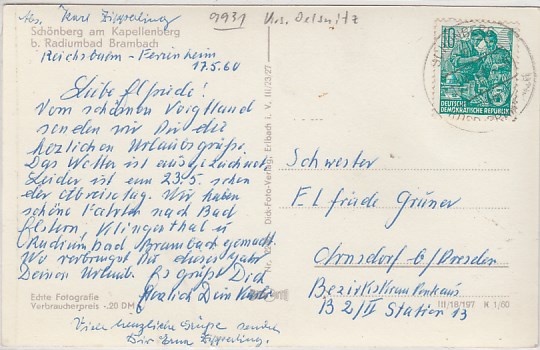 Abs. Karl Zipperling 9931 Krs. Oelsnitz
Schönberg am Kapellenberg
b. Radiumbad Brambach
Reichsbahn - Ferienheim
17.5.60
Liebe Elfriede!
Vom schönen Voigtland
senden wir Dir die
herzlichen Urlaubsgrüße.
Das Wetter ist ausgezeichnet.
Leider ist am 23.5. schon
der Abreisetag. Wir haben
schöne Fahrten nach Bad
Elster, Klingenthal u.
Radiumbad Brambach gemacht.
Wo verbringst Du dieses Jahr
Deinen Urlaub. Es grüßt Dich
herzlich Dein Karl
Viele herzliche Grüße sendet
Dir Zipperling.
Echte Fotografie
Verbraucherpreis -.20 DM
Dick-Foto-Verlag, Erlbach i. V. III/23/27
10
DEUTSCHE
DEMOKRATISCHE REPUBLIK
Schwester
Elfriede Grüner
Arnsdorf b/Dresden
Bezirkskrankenhaus
B 2/II Station 13
III/18/197 K 1/60